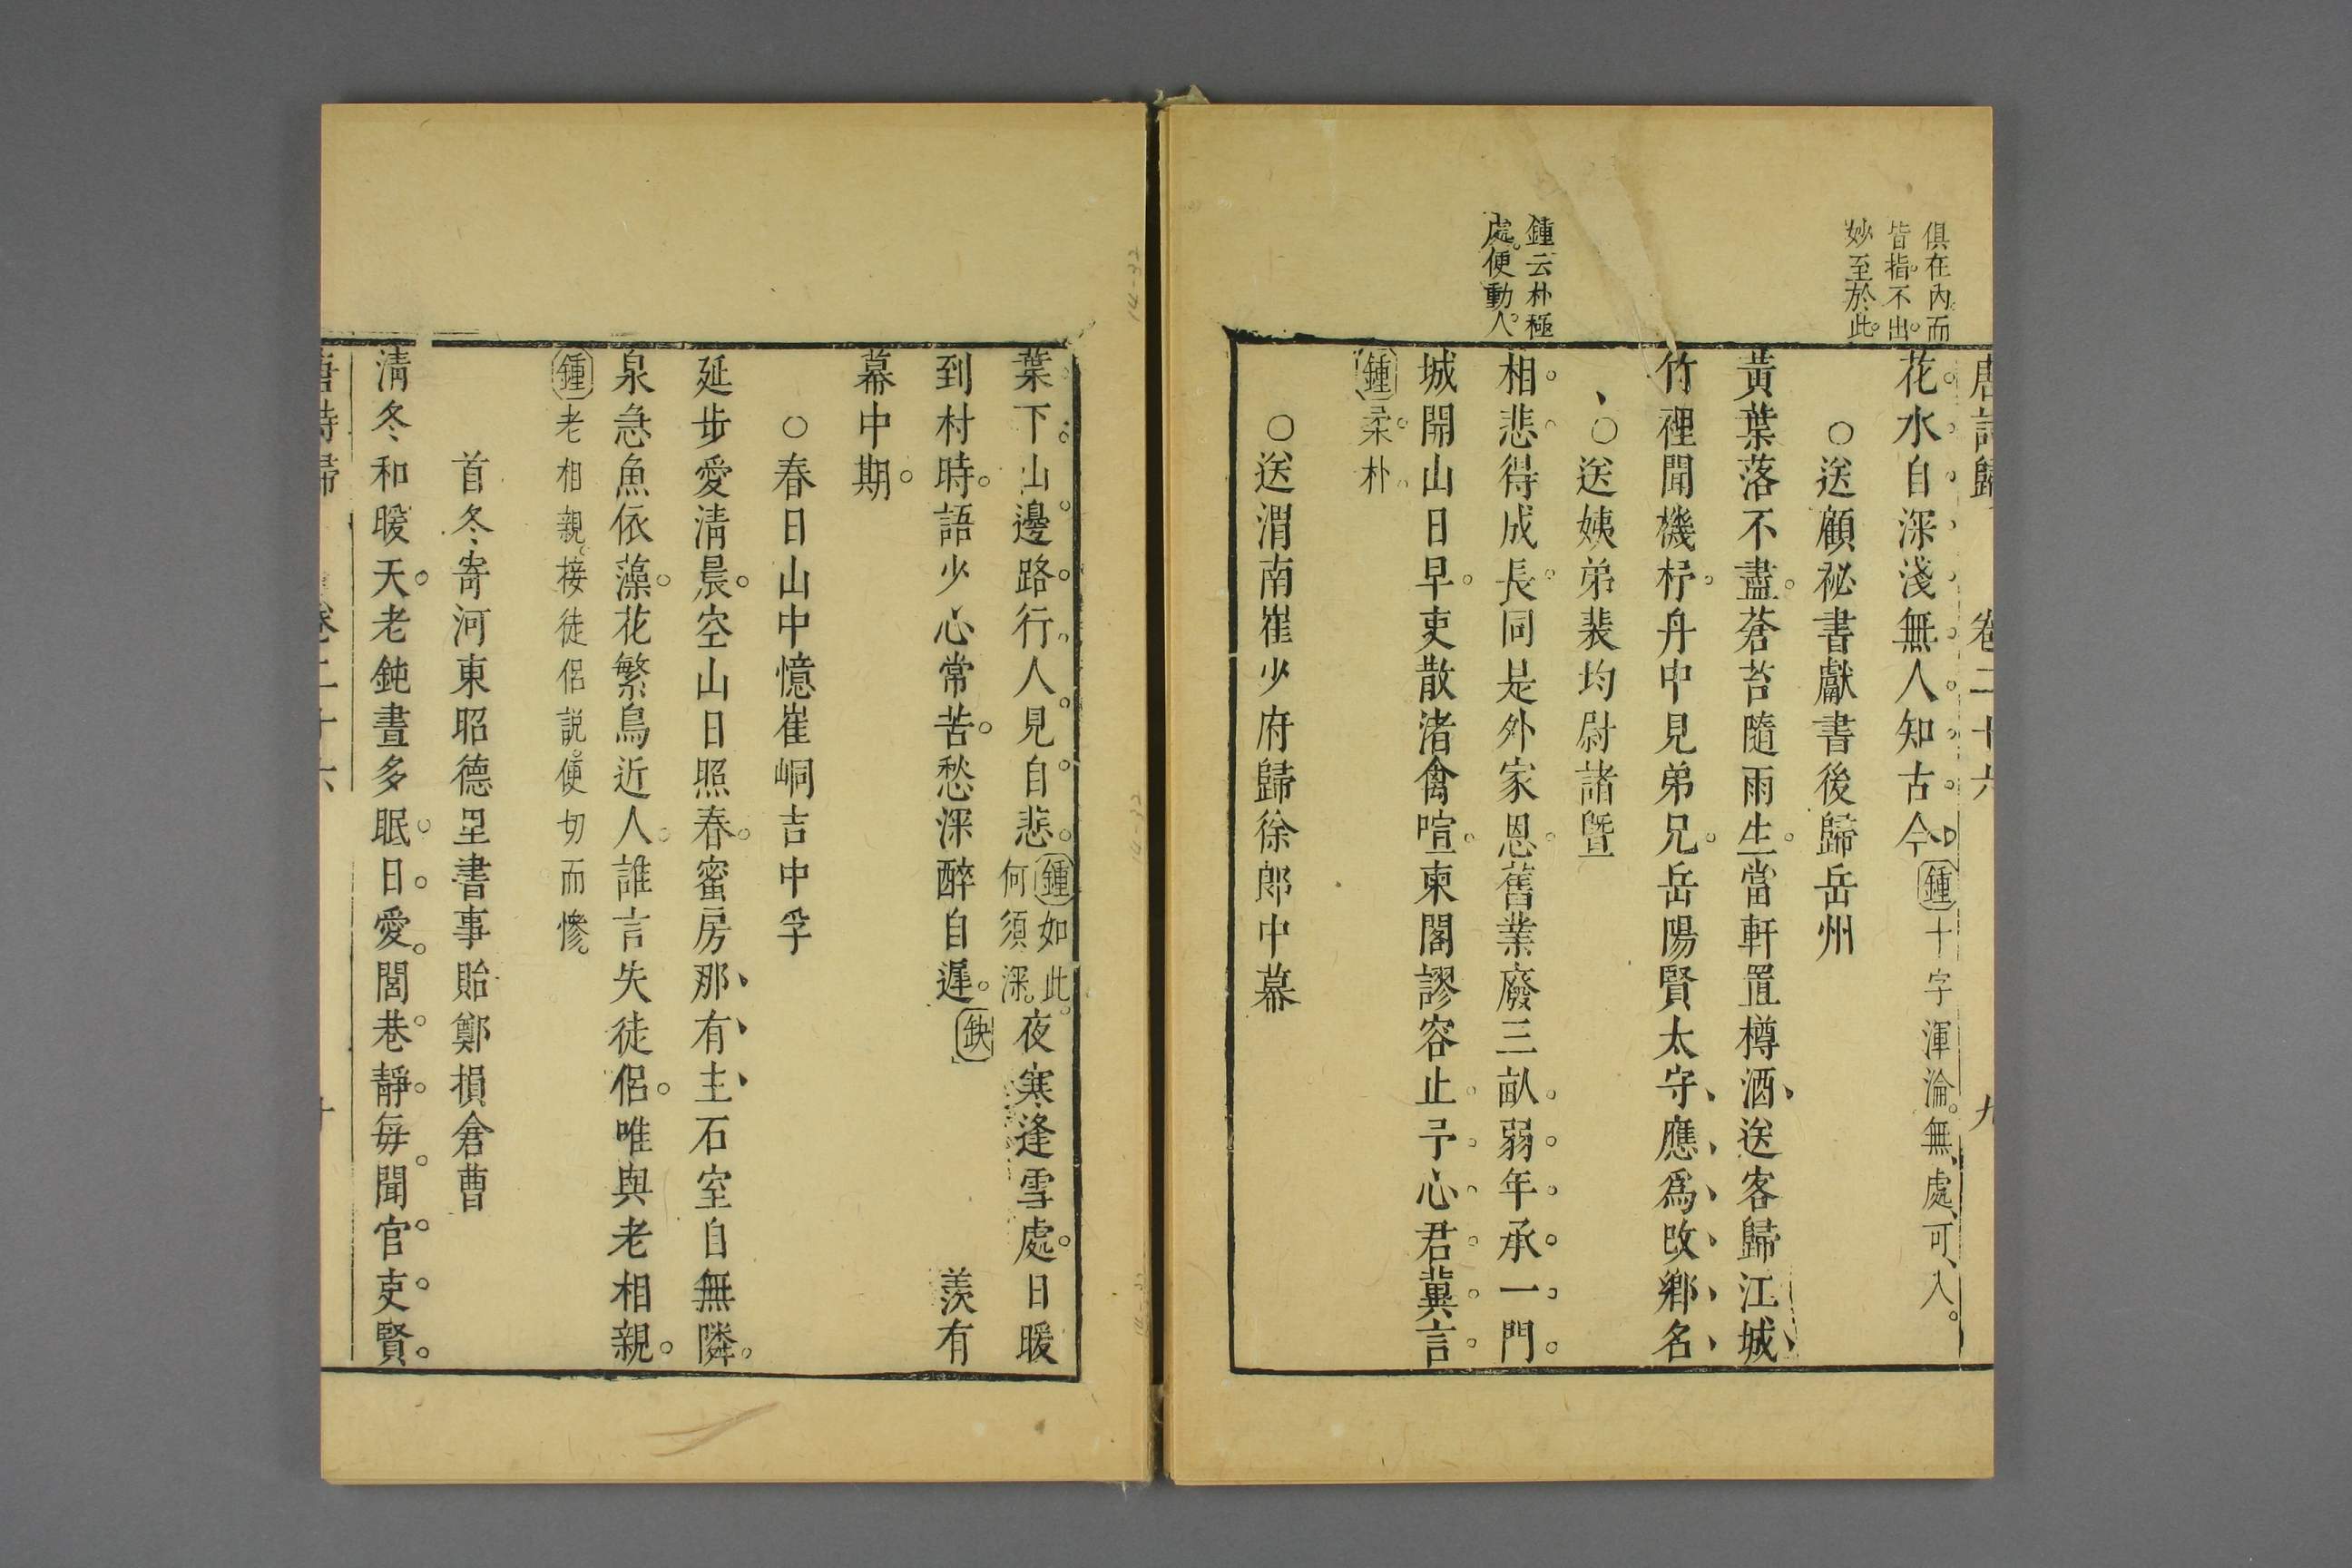 唐詩歸 卷二十六 九
俱在內。而
皆指不出。
妙至於此。
花水自深淺無人知古今 鍾 十字渾淪。無處可入。
○送顧祕書獻書後歸岳州
黃葉落不盡。蒼苔隨雨生。當軒置樽酒、送客歸江城、
竹裡聞機杼。舟中見弟兄。岳陽賢太守、應爲改鄉名、
○送姨弟裴均尉諸暨
鍾云朴極
處。便動人。
相悲得成長同是外家恩。舊業廢三畝。弱年承一門。
城開山日早。吏散渚禽喧。東閣謬容止予心君冀言。
鍾 柔朴
○送渭南崔少府歸徐郎中幕
葉下山邊路。行人見自悲。鍾 如此。何須深。夜寒逢雪處。日暖
到村時。語少心常苦。愁深醉自遲。缺 羨有
幕中期。
○春日山中憶崔峒吉中孚
延步愛淸晨。空山日照春。蜜房那、有、主、石室自無隣。
泉急魚依藻。花繁鳥近人。誰言失徒侶。唯與老相親。
鍾 老相親。接徒侶說。便切而慘。
首冬寄河東昭德里書事貽鄭損倉曹
淸冬和暖天。老鈍晝多眠。日愛閭巷靜。每聞官吏賢。
唐詩歸 卷二十六 十